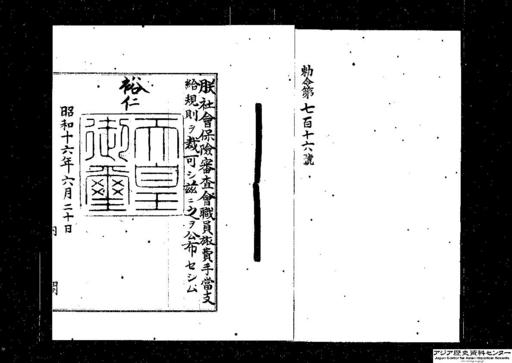 勅令第七百十六號
朕社會保險審査會職員旅費手當支
給規則ヲ裁可シ茲ニ之ヲ公布セシム
裕仁
天皇
御璽
昭和十六年六月二十日
内
閣
アジア歴史資料センター
Japan Center for Asian Historical Records